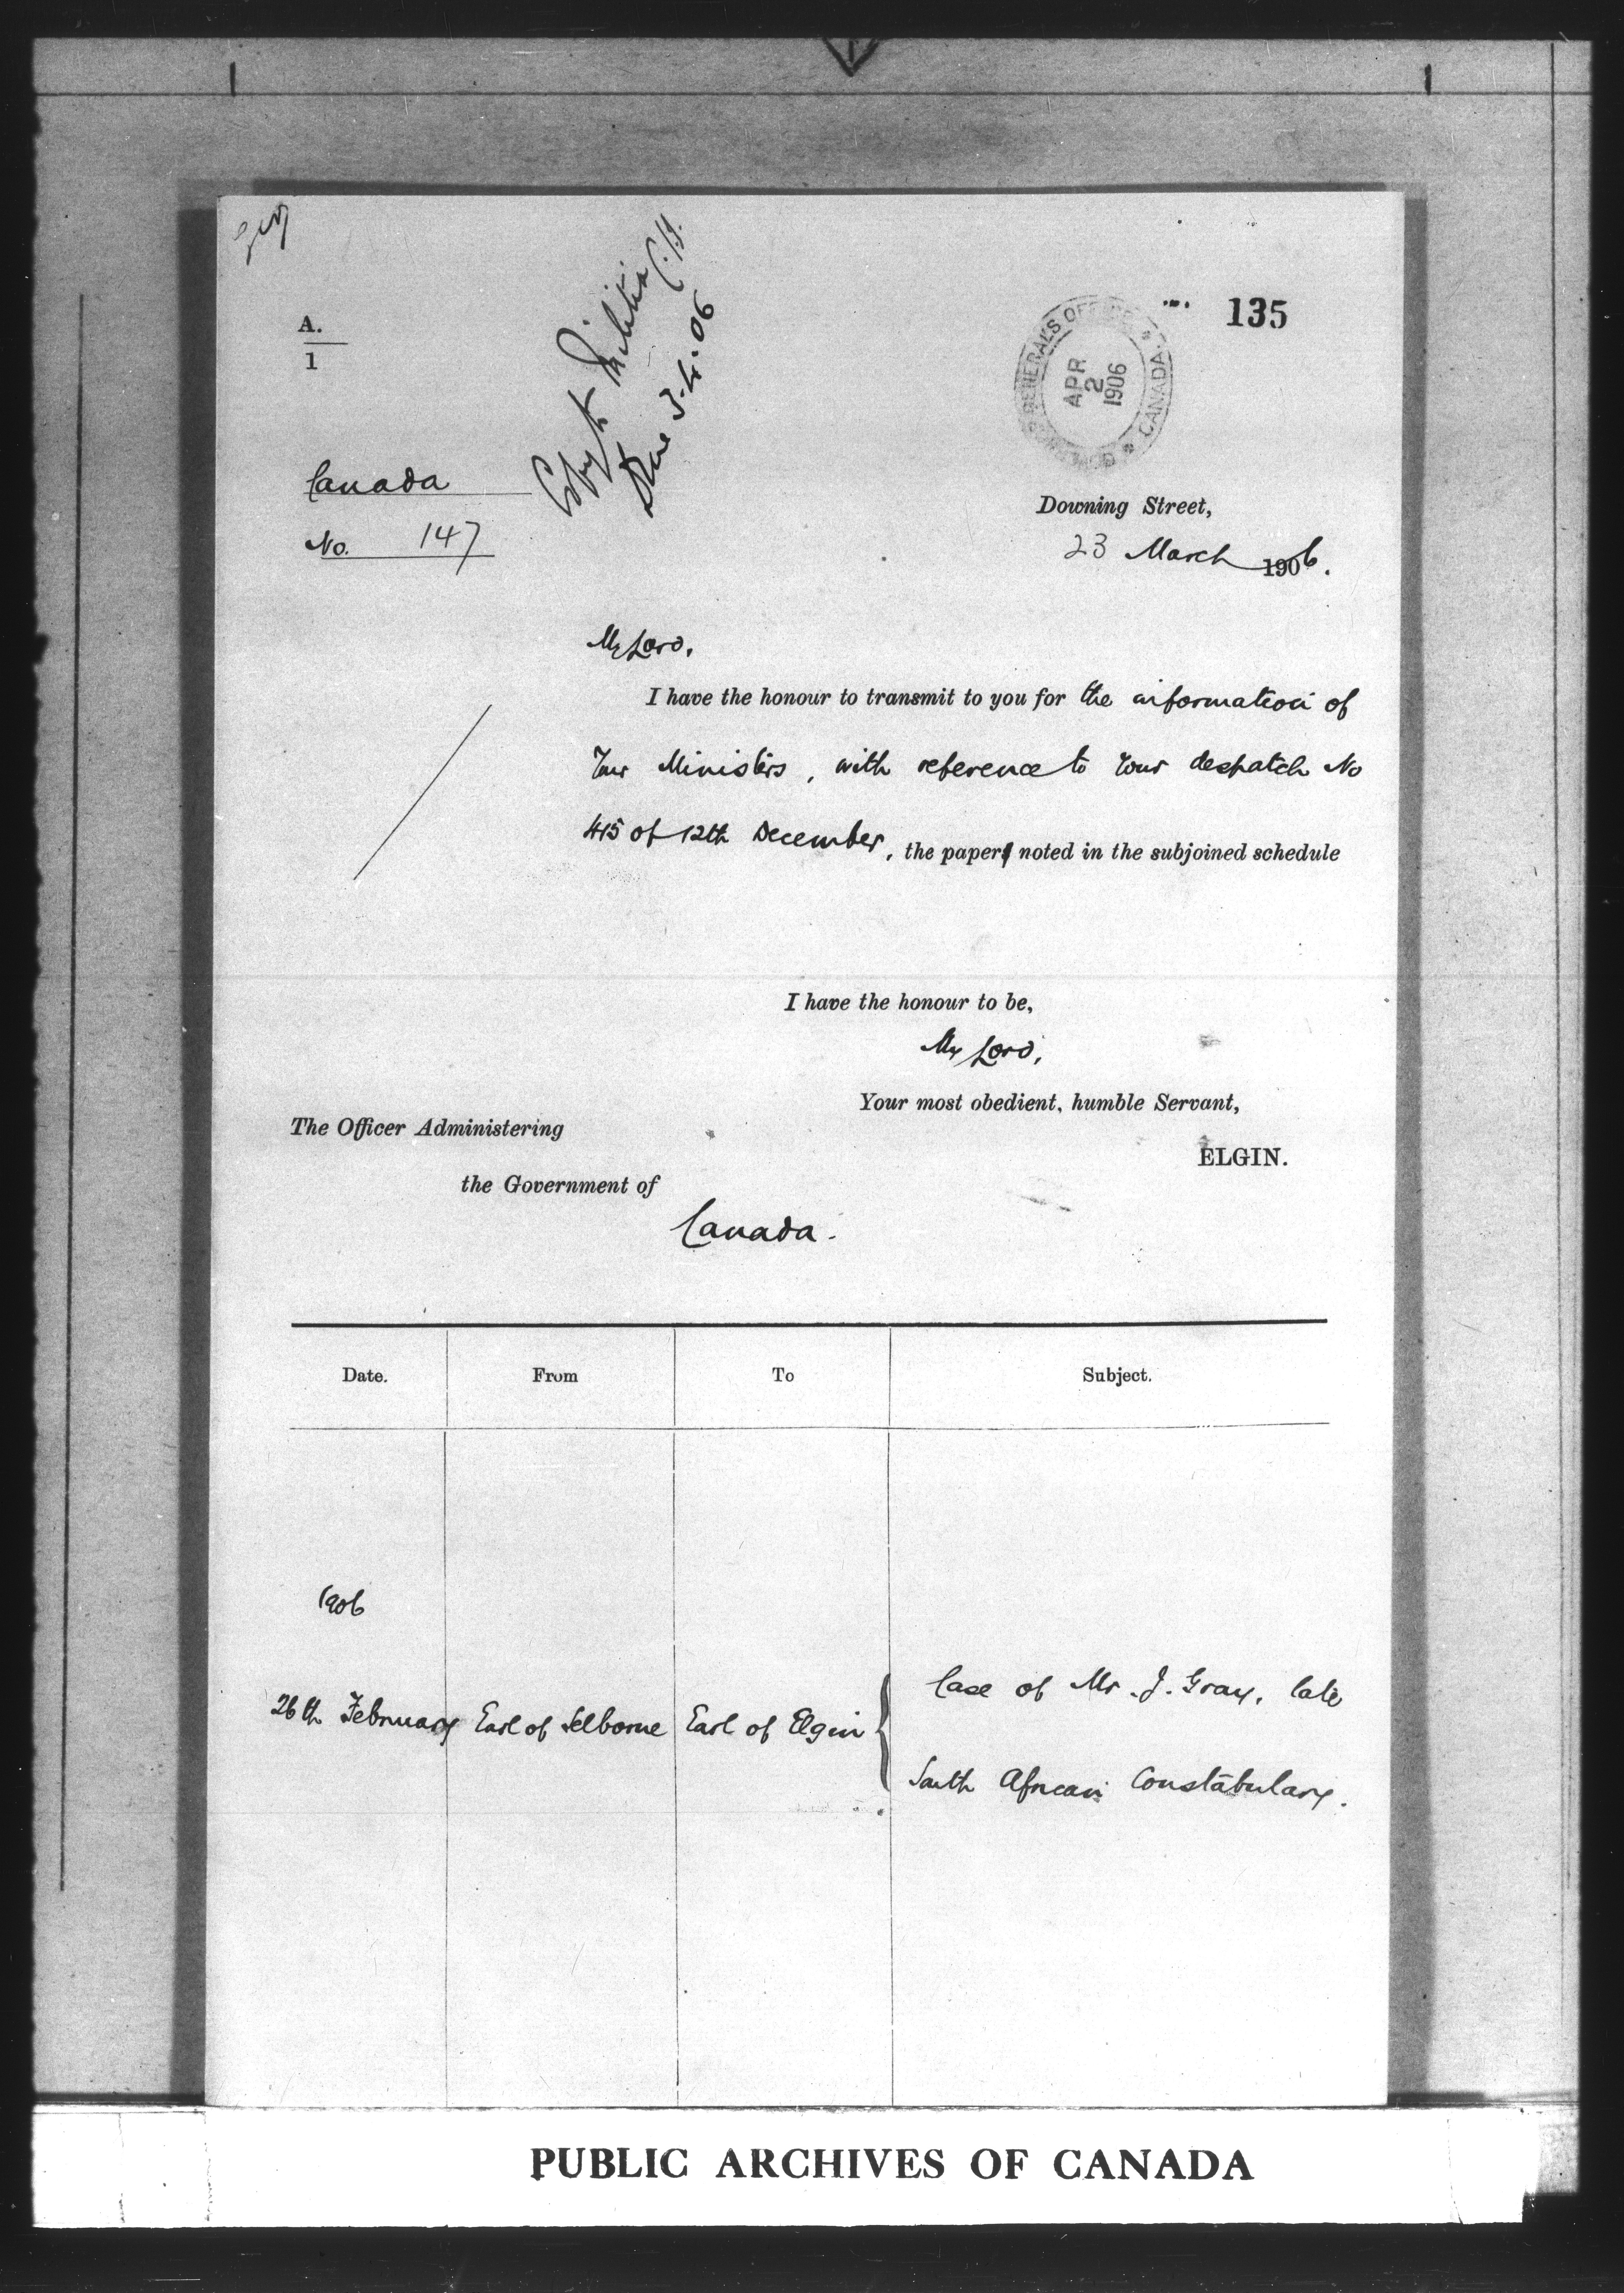 135
A.
1
Copy to Militia
3.4.06
GOVERNOR GENERAL'S OFFICE
* CANADA. *
APR
2
1906
Canada
No. 147
Downing Street,
23 March 1906.
My Lord,
I have the honour to transmit to you for the information of
Your Ministers, with reference to Your despatch No
415 of 12th December, the paper noted in the subjoined schedule
I have the honour to be,
My Lord,
Your most obedient, humble Servant,
ELGIN.
The Officer Administering
the Government of
Canada.
Date. From To Subject.
1906
26th February Earl of Selborne Earl of Elgin { Case of Mr. J. Gray, late
South African Constabulary.
PUBLIC ARCHIVES OF CANADA